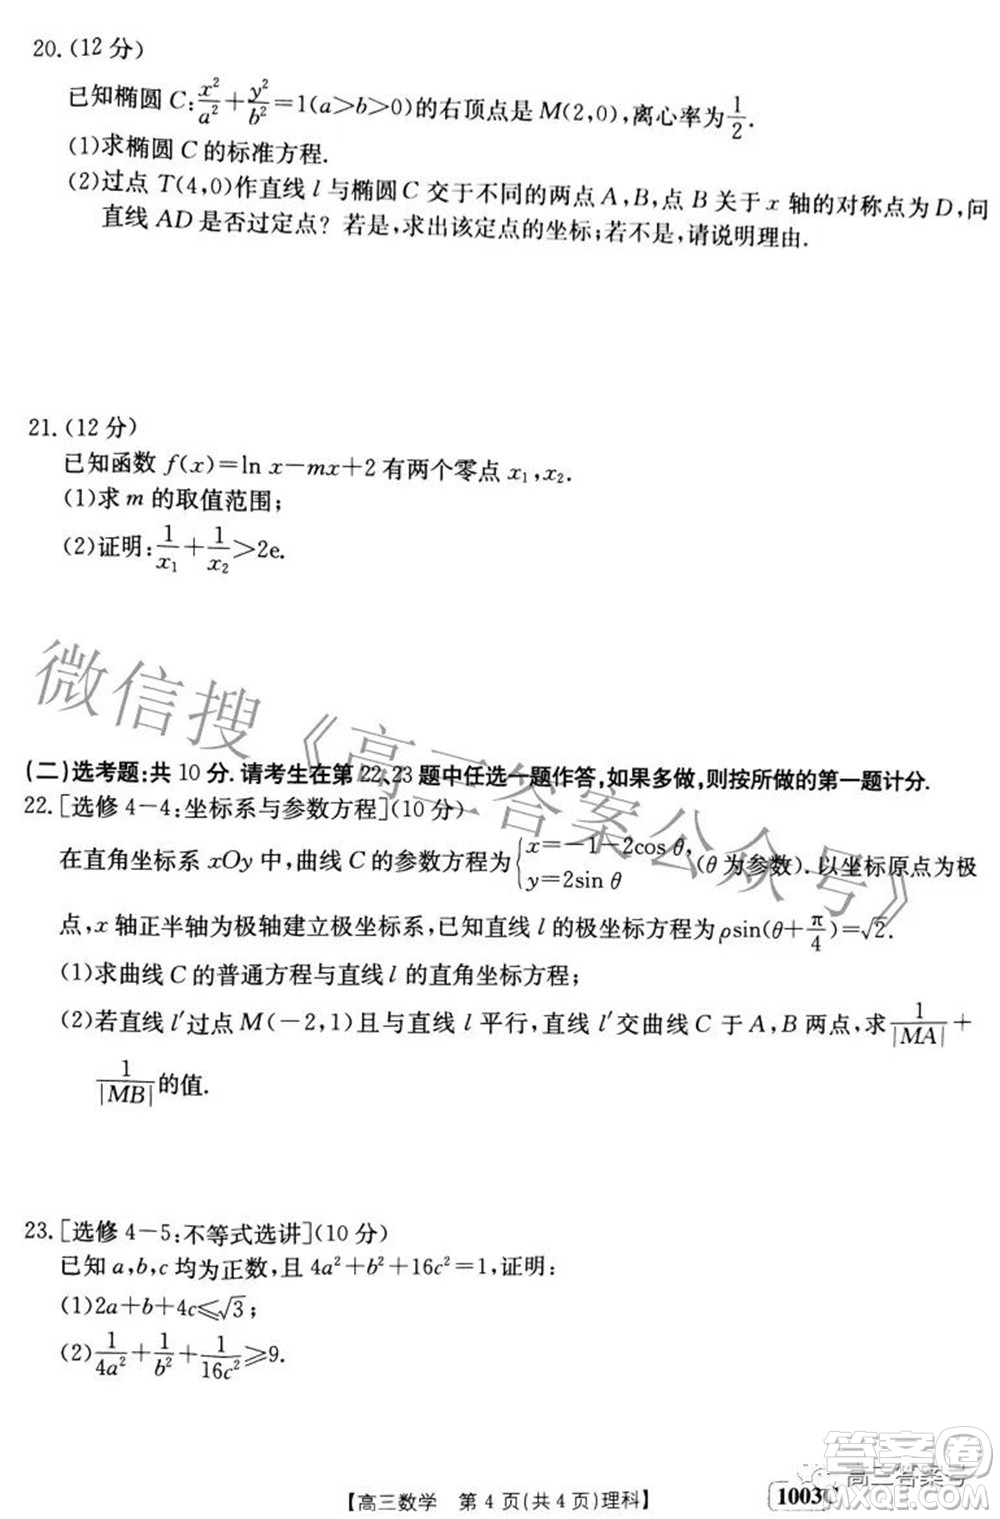 20.(12 分)
已知椭圆 C:x²/a²+y²/b²=1(a>b>0)的右顶点是 M(2,0),离心率为1/2.
(1)求椭圆 C 的标准方程.
(2)过点 T(4,0)作直线 l 与椭圆 C 交于不同的两点 A,B,点 B 关于 x 轴的对称点为 D,问
直线 AD 是否过定点？若是,求出该定点的坐标;若不是,请说明理由.
21.(12 分)
已知函数 f(x)=ln x-mx+2 有两个零点 x₁,x₂.
(1)求 m 的取值范围;
(2)证明:1/x₁+1/x₂>2e.
微信搜《高三答案公众号》
(二)选考题:共 10 分.请考生在第 22、23 题中任选一题作答,如果多做,则按所做的第一题计分.
22.[选修 4-4:坐标系与参数方程](10 分)
在直角坐标系 xOy 中,曲线 C 的参数方程为{x=-1-2cos θ, y=2sin θ (θ 为参数).以坐标原点为极
点,x 轴正半轴为极轴建立极坐标系,已知直线 l 的极坐标方程为 ρsin(θ+π/4)=√2.
(1)求曲线 C 的普通方程与直线 l 的直角坐标方程;
(2)若直线 l′过点 M(-2,1)且与直线 l 平行,直线 l′交曲线 C 于 A,B 两点,求1/|MA|+
1/|MB|的值.
23.[选修 4-5:不等式选讲](10 分)
已知 a,b,c 均为正数,且 4a²+b²+16c²=1,证明:
(1)2a+b+4c≤√3;
(2)1/4a²+1/b²+1/16c²≥9.
【高三数学 第 4 页(共 4 页)理科】
1003C
高三答案号
答案圈
MXQE.COM